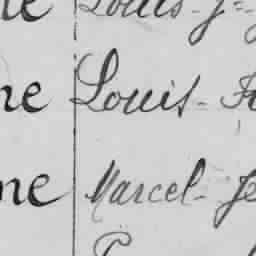 ne Louis - J
ne Louis - F
ne Marcel - Je